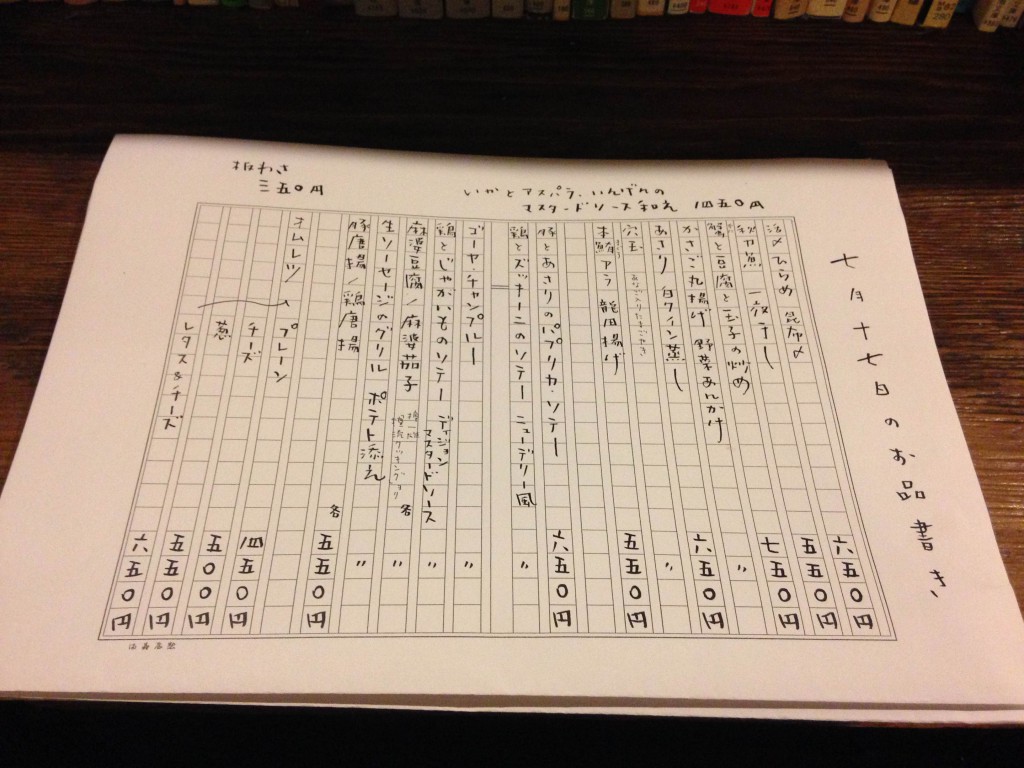 七月十七日のお品書き
活〆ひらめ 昆布〆 六五〇円
秋刀魚 一夜干し 五五〇円
蟹と豆腐と玉子の炒め 七五〇円
かさご丸揚げ 野菜あんかけ 〃
あさり 白ワイン蒸し 六五〇円
穴玉 あなご入りたまごやき 〃
本鮪アラ 竜田揚げ 五五〇円
豚とあさりのパプリカ・ソテー 六五〇円
鶏とズッキーニのソテー ニューデリー風 〃
ゴーヤ・チャンプルー 〃
鶏とじゃがいものソテー ディジョンマスタードソース 〃
麻婆豆腐／麻婆茄子 各 〃
生ソーセージのグリル ポテト添え 〃
豚唐揚／鶏唐揚 各 五五〇円
オムレツ プレーン 四五〇円
チーズ 五〇〇円
葱 五五〇円
レタス&チーズ 六五〇円
いかとアスパラ、いんげんの
マスタードソース和え 四五〇円
板わさ
三五〇円